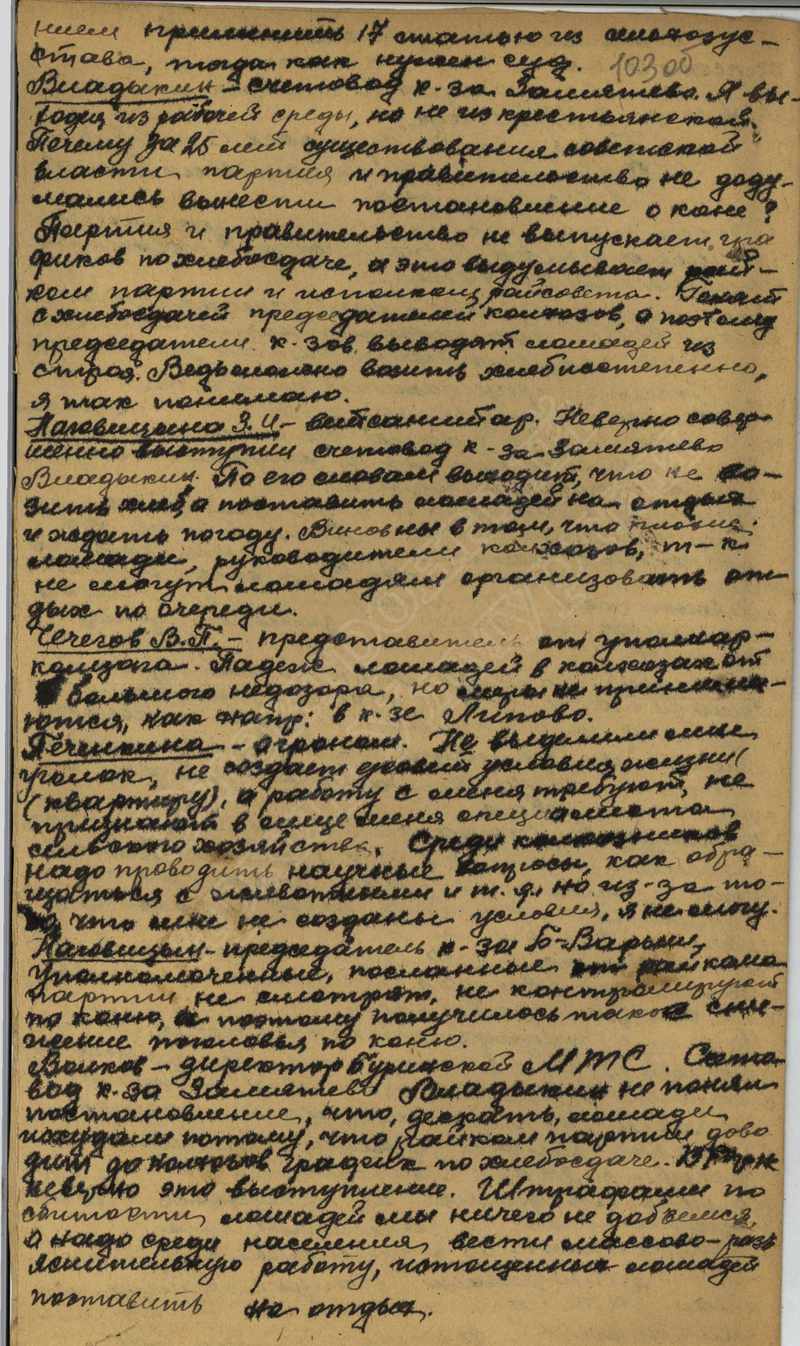 нием применить 17 статью из сельхозус-
тава, тогда как нужен суд. 10300
Владыкин – счетовод к-за Замятево. Я вы-
ходец из рабочей среды, но не из крестьянской.
Почему за 25 лет существования советской
власти, партия и правительство не доду-
мались вынести постановление о коне?
Партия и правительство не выпускает гра
фиков по хлебосдаче, а это выдумывает рай-
ком партии и исполком райсовета. Гонят
с хлебосдачей председателей колхозов, а поэтому
председатели к-зов выводят лошадей из
строя. Ведь можно возить хлеб постепенно,
я так понимаю.
Наговицына З.И – ветсанитар. Неверно совер-
шенно выступил счетовод к-за Замятево
Владыкин. По его словам выходит, что не во-
зить хлеб, а поставить лошадей на отдых
и ждать погоду. Виновны в том, что плохие
лошади, руководители колхозов, т-к
не могут лошадям организовать от
дых по очереди.
Чечегов В.П. – представитель от уполнар-
комзага. Падеж лошадей в колхозах от
большого недозора, но меры не принима-
ются, как напр: в к-зе Липово.
Печенкина – агроном. Не выделили мне
уголок, не создает условия жизни
(квартиру), а работу с меня требуют, не
признают в лице меня специалиста
сельского хозяйства. Среди колхозников
надо проводить научные вопросы, как обра-
щаться с животными и т.д. но из-за то-
го что мне не созданы условия, я не могу.
Наговицын – председатель к-за Б-Варыж,
Уполномоченные, посланные от райкома
партии не смотрят, не контролируют
по коню, а поэтому получилось такое сни-
жение поголовья по коню.
Волков – директор Буринской МТС. Счето
вод к-за Замятево Владыкин не понял
постановление, что, дескать, лошади
похудали потому, что райком партии дово
дит до колхозов график по хлебосдаче.
неверно это выступление. Штрафами по
сытости лошадей мы ничего не добьемся,
а надо среди населения вести массово-разъ
яснительную работу, истощенных лошадей
поставить на отдых.